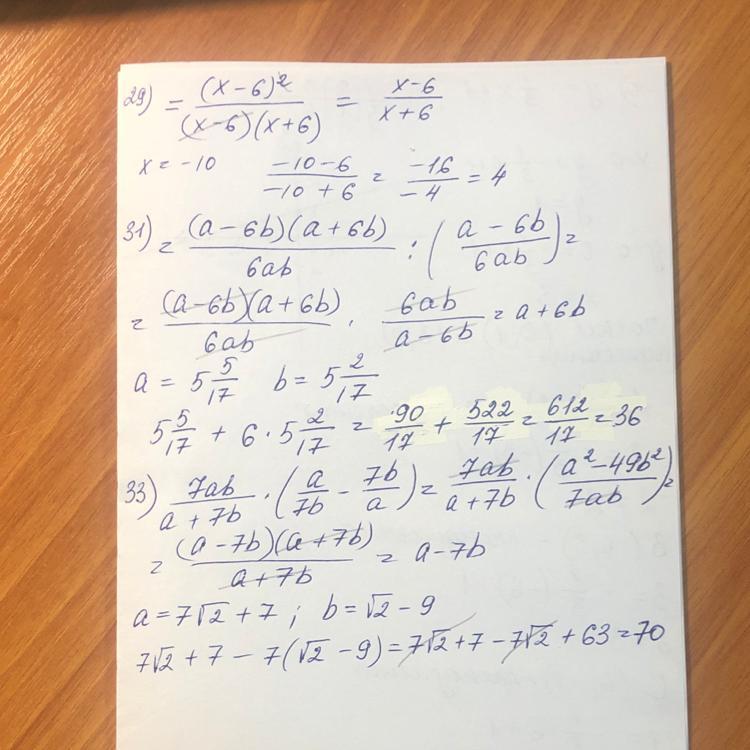 29) = (x-6)² / (x-6)(x+6) = x-6 / x+6
x = -10   -10-6 / -10+6 = -16 / -4 = 4
31) = (a-6b)(a+6b) / 6ab : (a-6b / 6ab) =
= (a-6b)(a+6b) / 6ab · 6ab / a-6b = a+6b
a = 5 5/17   b = 5 2/17
5 5/17 + 6 · 5 2/17 = 90/17 + 522/17 = 612/17 = 36
33) 7ab / a+7b · (a/7b - 7b/a) = 7ab / a+7b · (a²-49b² / 7ab) =
= (a-7b)(a+7b) / a+7b = a-7b
a = 7√2 + 7 ; b = √2 - 9
7√2 + 7 - 7(√2 - 9) = 7√2 + 7 - 7√2 + 63 = 70